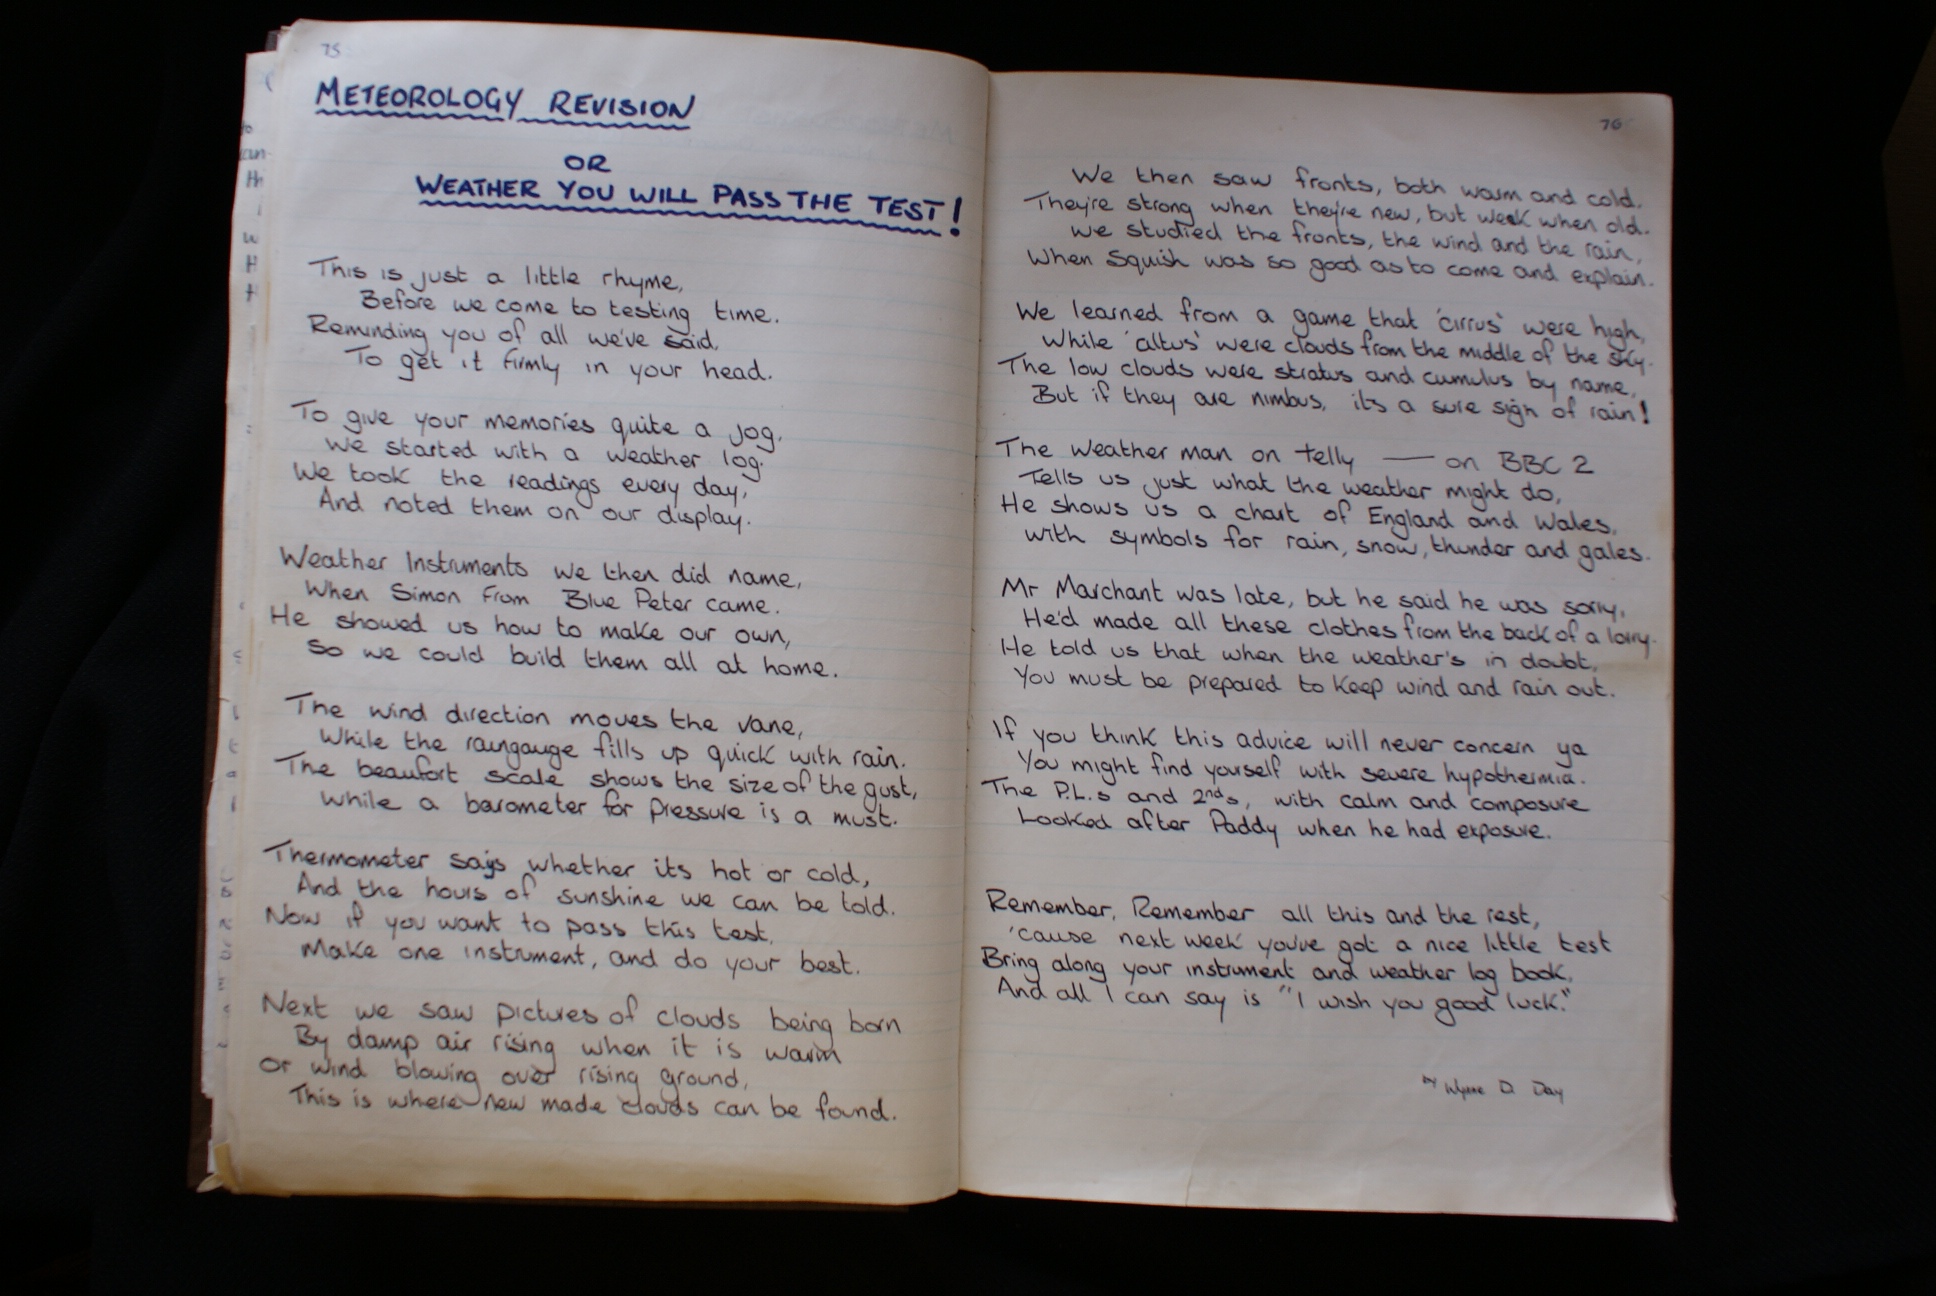 75
METEOROLOGY REVISION
OR
WEATHER YOU WILL PASS THE TEST!
This is just a little rhyme,
Before we come to testing time.
Reminding you of all we've said,
To get it firmly in your head.
To give your memories quite a jog,
We started with a weather log.
We took the readings every day,
And noted them on our display.
Weather Instruments we then did name,
When Simon from Blue Peter came.
He showed us how to make our own,
So we could build them all at home.
The wind direction moves the vane,
While the raingauge fills up quick with rain.
The beaufort scale shows the size of the gust,
While a barometer for pressure is a must.
Thermometer says whether its hot or cold,
And the hours of sunshine we can be told.
Now if you want to pass this test,
Make one instrument, and do your best.
Next we saw pictures of clouds being born
By damp air rising when it is warm
Or wind blowing over rising ground,
This is where new made clouds can be found.
76
We then saw fronts, both warm and cold.
They're strong when they're new, but weak when old.
We studied the fronts, the wind and the rain,
When Squish was so good as to come and explain.
We learned from a game that 'cirrus' were high,
While 'altus' were clouds from the middle of the sky.
The low clouds were stratus and cumulus by name,
But if they are nimbus, its a sure sign of rain!
The weather man on telly — on BBC 2
Tells us just what the weather might do,
He shows us a chart of England and Wales,
with symbols for rain, snow, thunder and gales.
Mr Marchant was late, but he said he was sorry,
He'd made all these clothes from the back of a lorry.
He told us that when the weather's in doubt,
You must be prepared to keep wind and rain out.
If you think this advice will never concern ya
You might find yourself with severe hypothermia.
The P.L.s and 2nds, with calm and composure
Looked after Paddy when he had exposure.
Remember, Remember all this and the rest,
'cause next week you've got a nice little test
Bring along your instrument and weather log book,
And all I can say is "I wish you good luck."
by Wynne D. Day